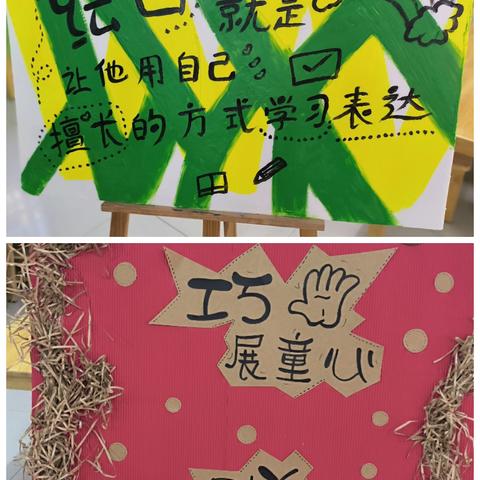 就是
让他用自己
擅长的方式学习表达
巧
展童心